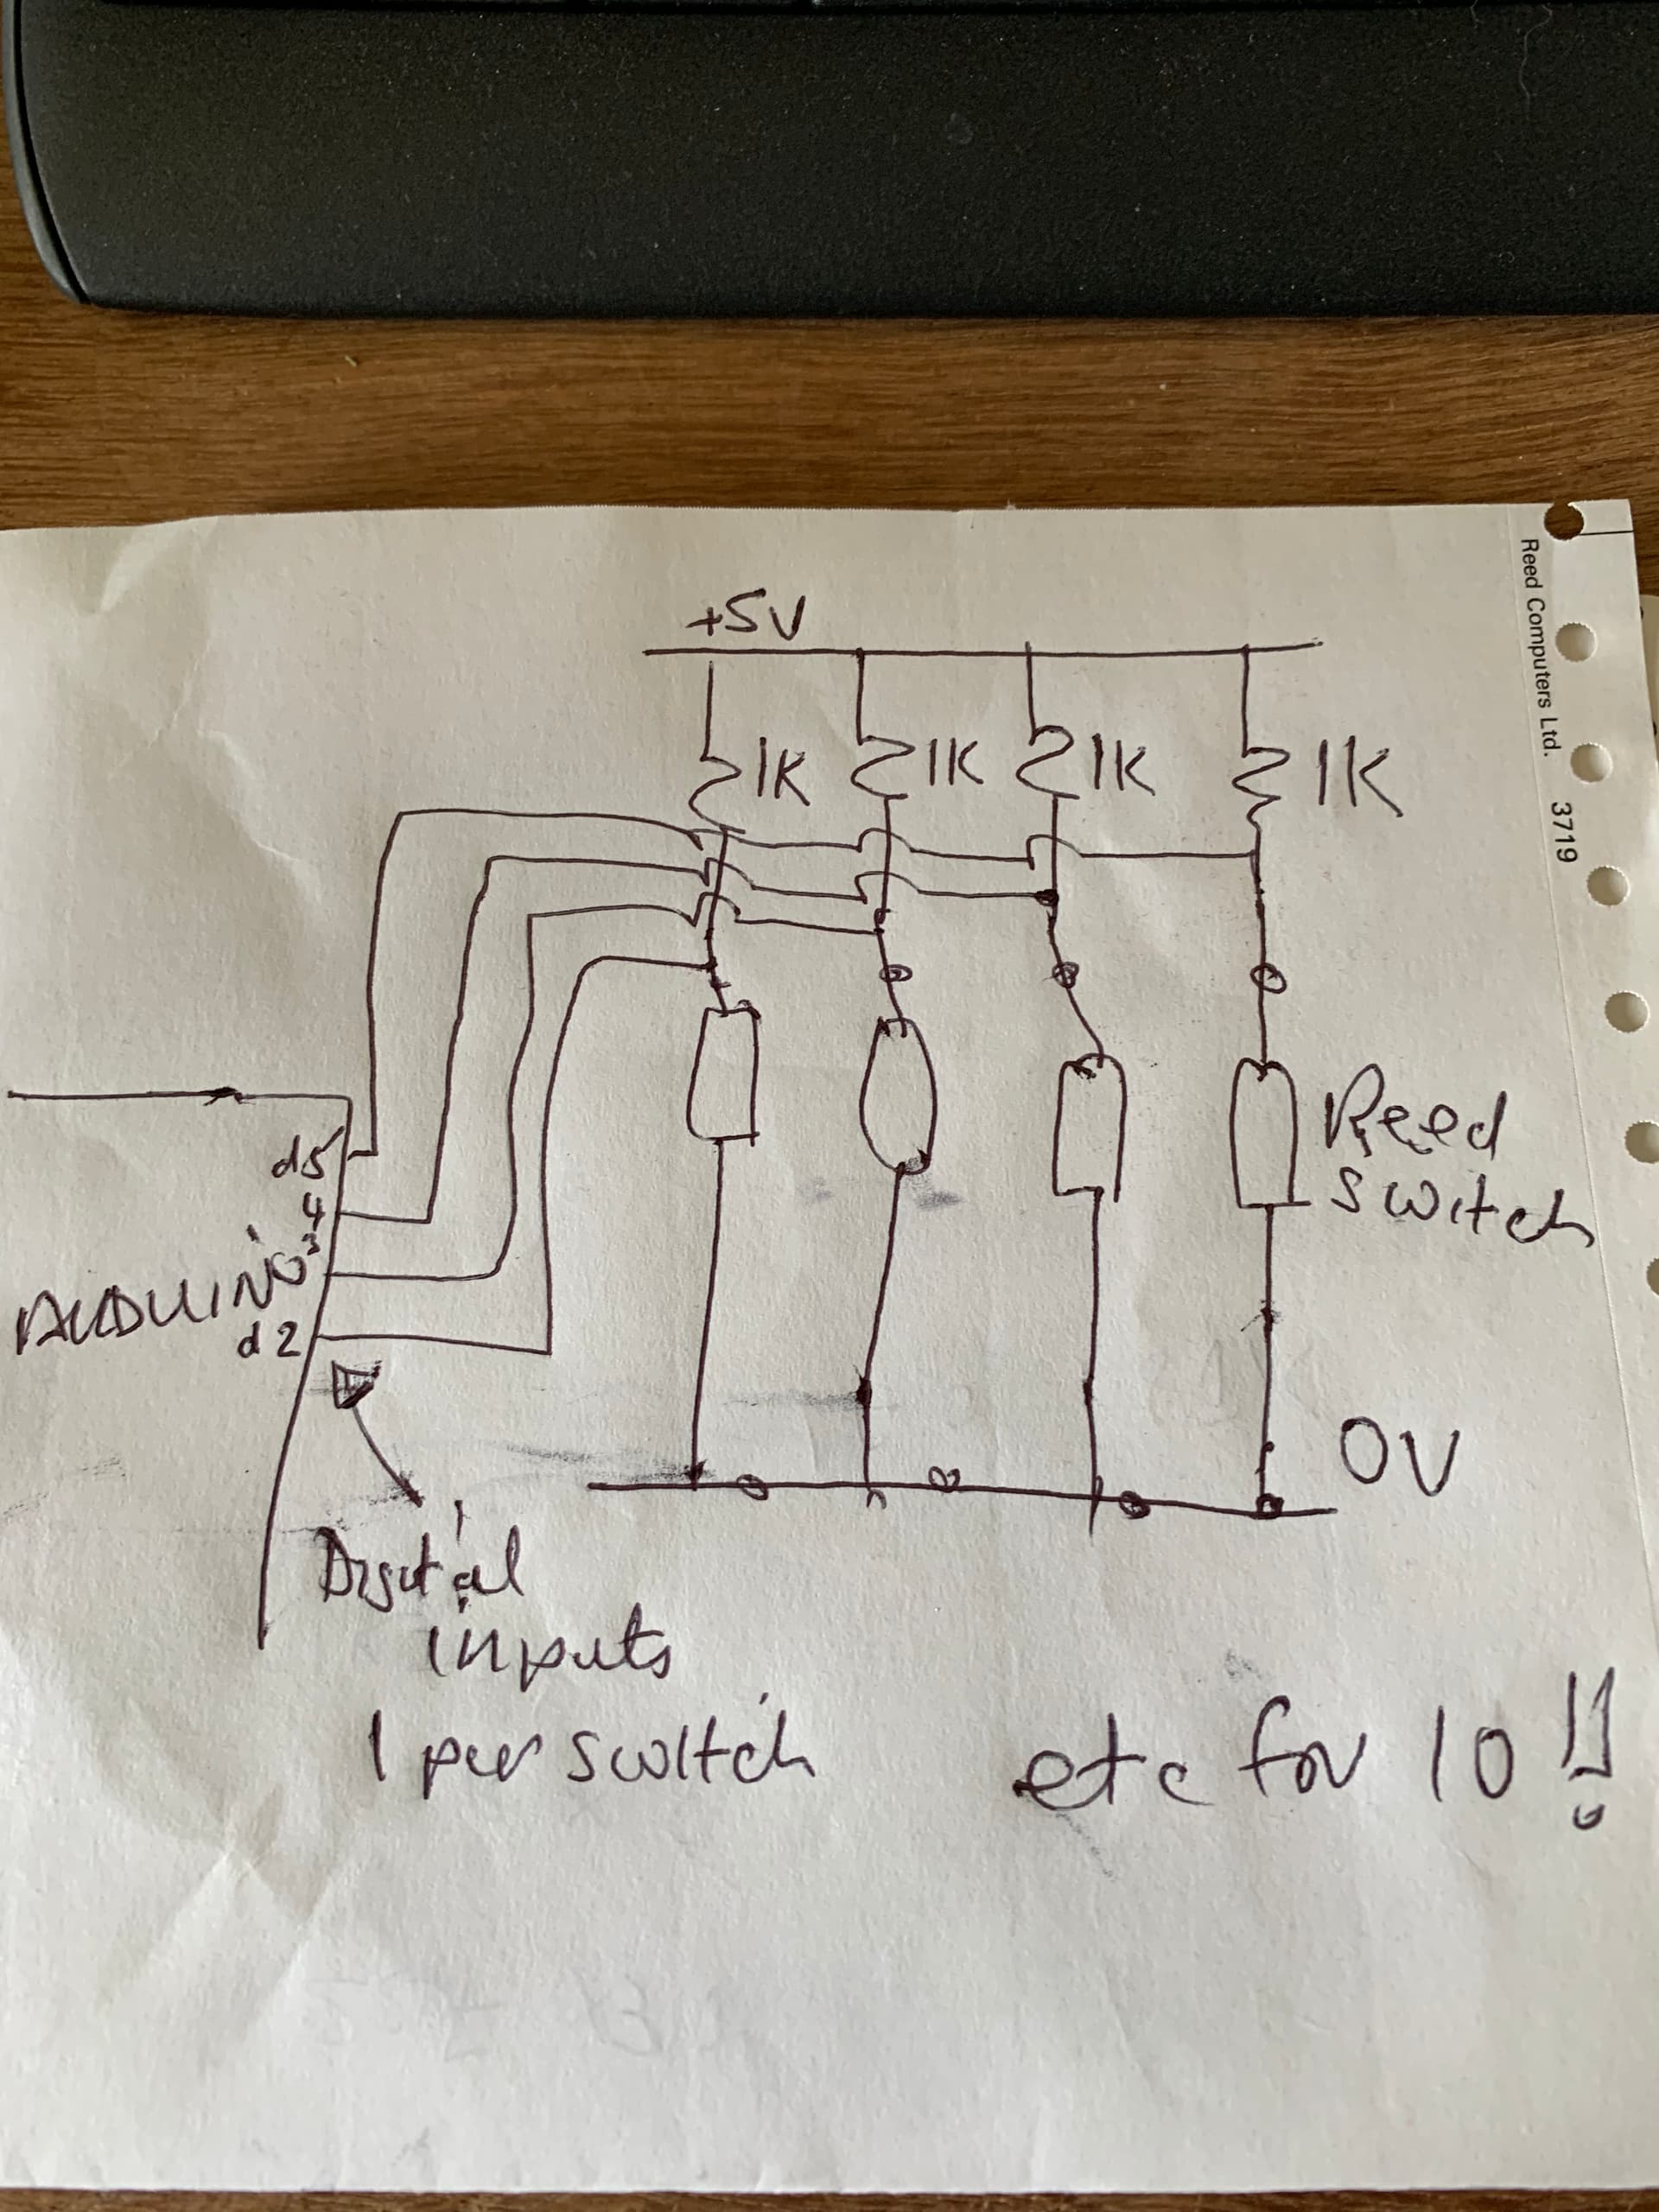 Reed Computers Ltd. 3719
+5V
1K 1K 1K 1K
d5
4
3
ARDUINO
d2
Reed
Switch
0V
Digital
inputs
1 per switch
etc for 10 !!